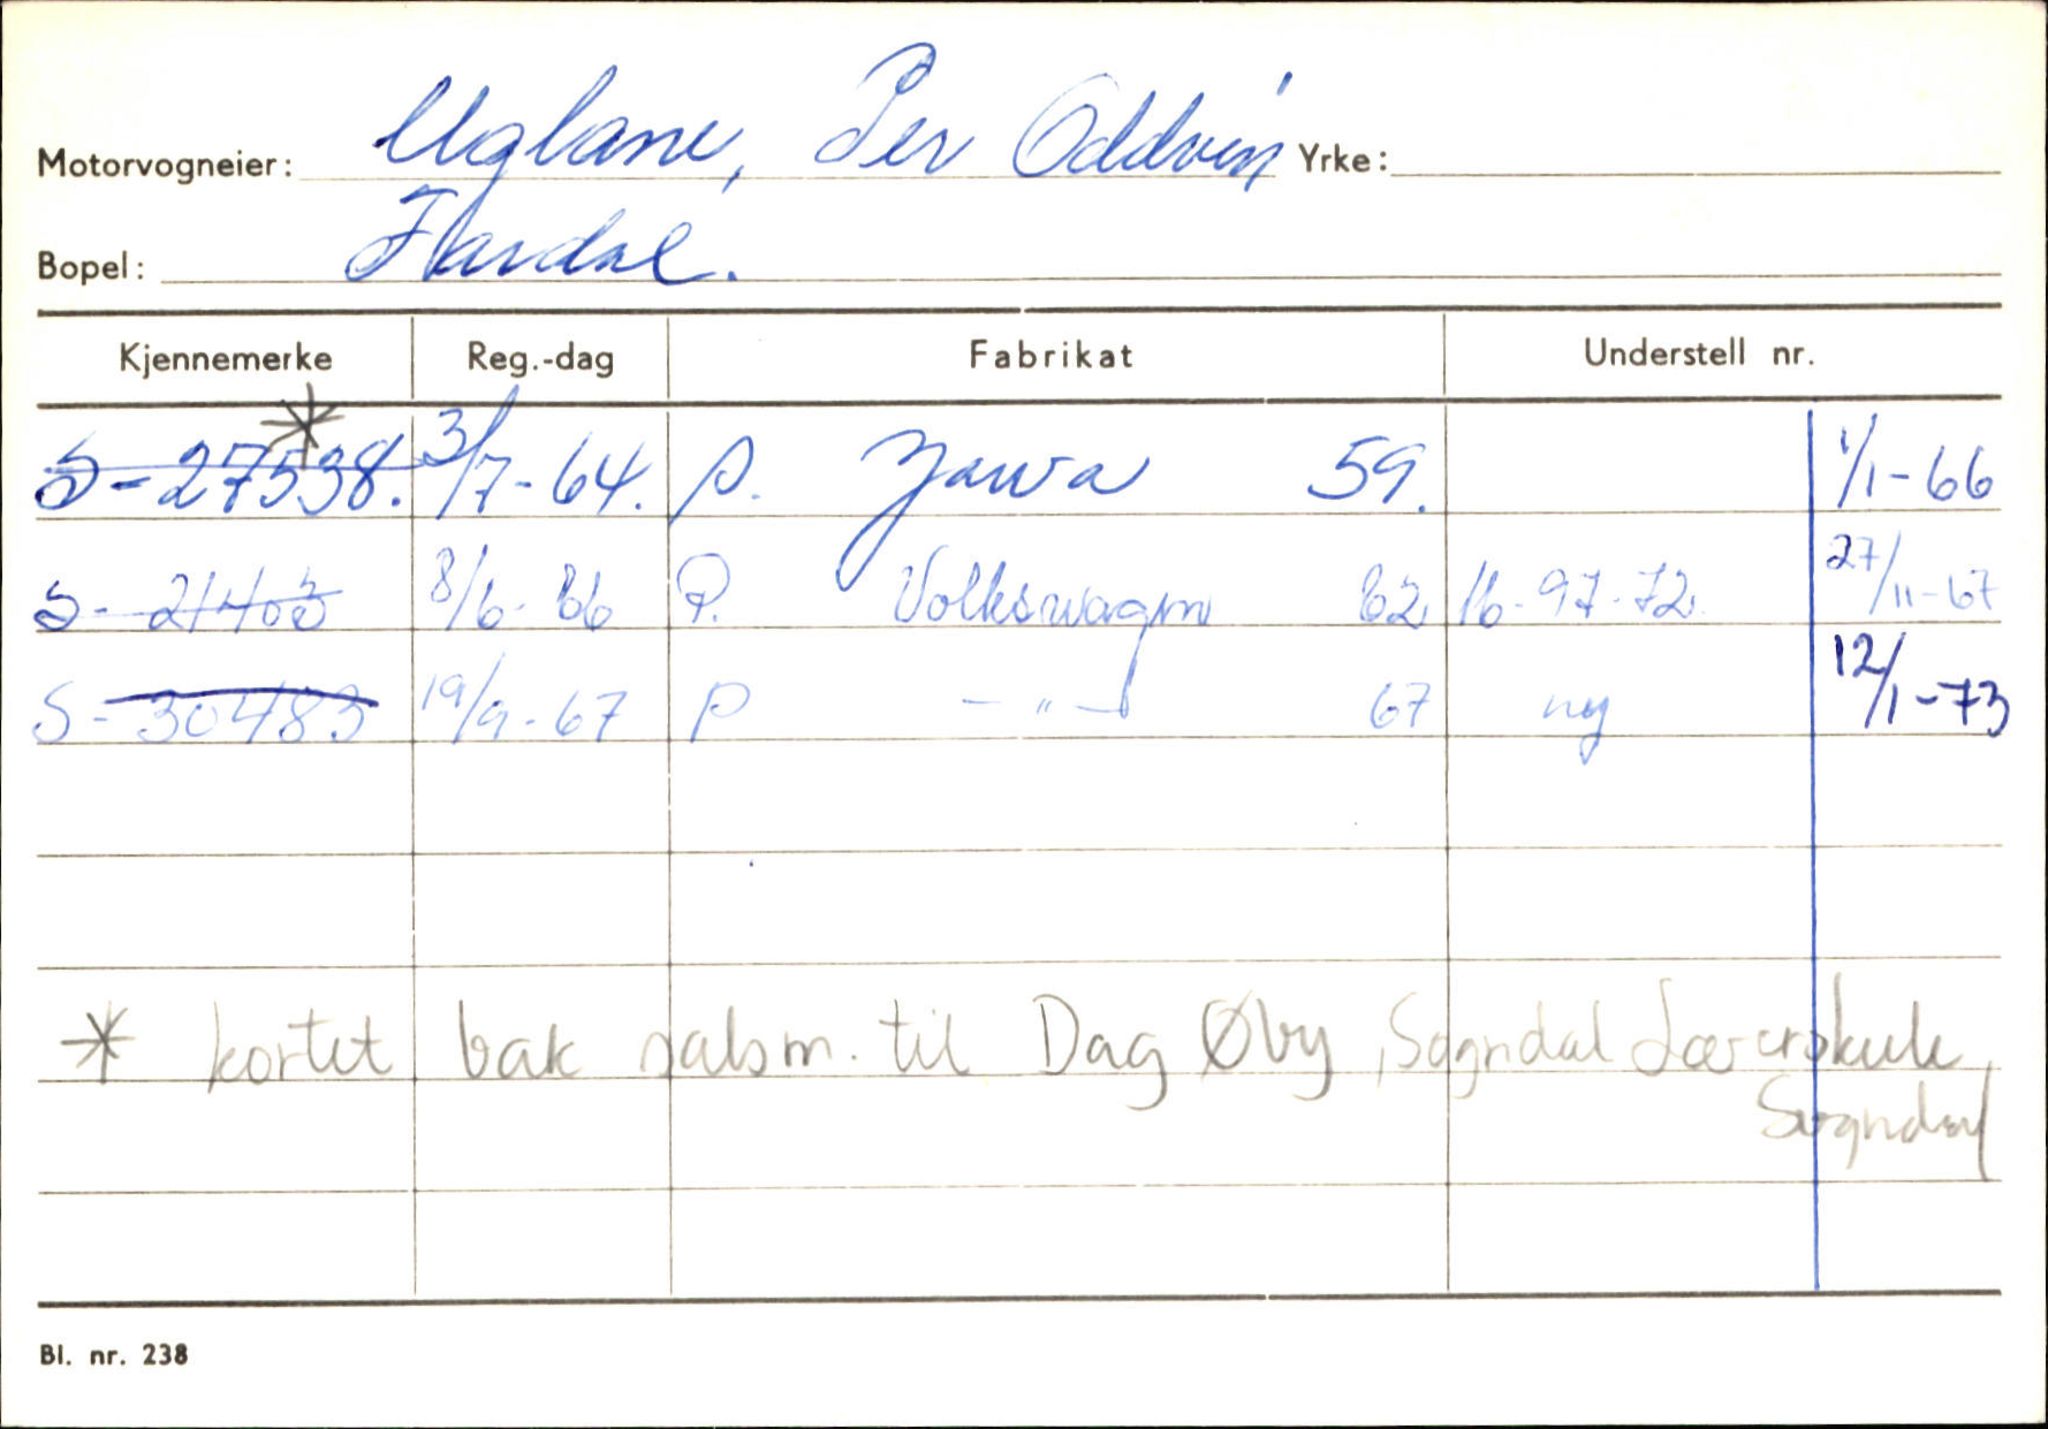 Motorvogneier: Uglane, Per Oddvin Yrke:
Bopel: Hardal.
Kjennemerke Reg.-dag Fabrikat Understell nr.
*
S-27538. 3/7-64. P. Jawa 59. 1/1-66
S-21403 8/6-66 P. Volkswagen 62 16-97-72 27/11-67
S-30483 19/9-67 P -"- 67 ny 12/1-73
* kortet bak salsm. til Dag Øby, Sogndal Lærerskule,
Sogndal
Bl. nr. 238